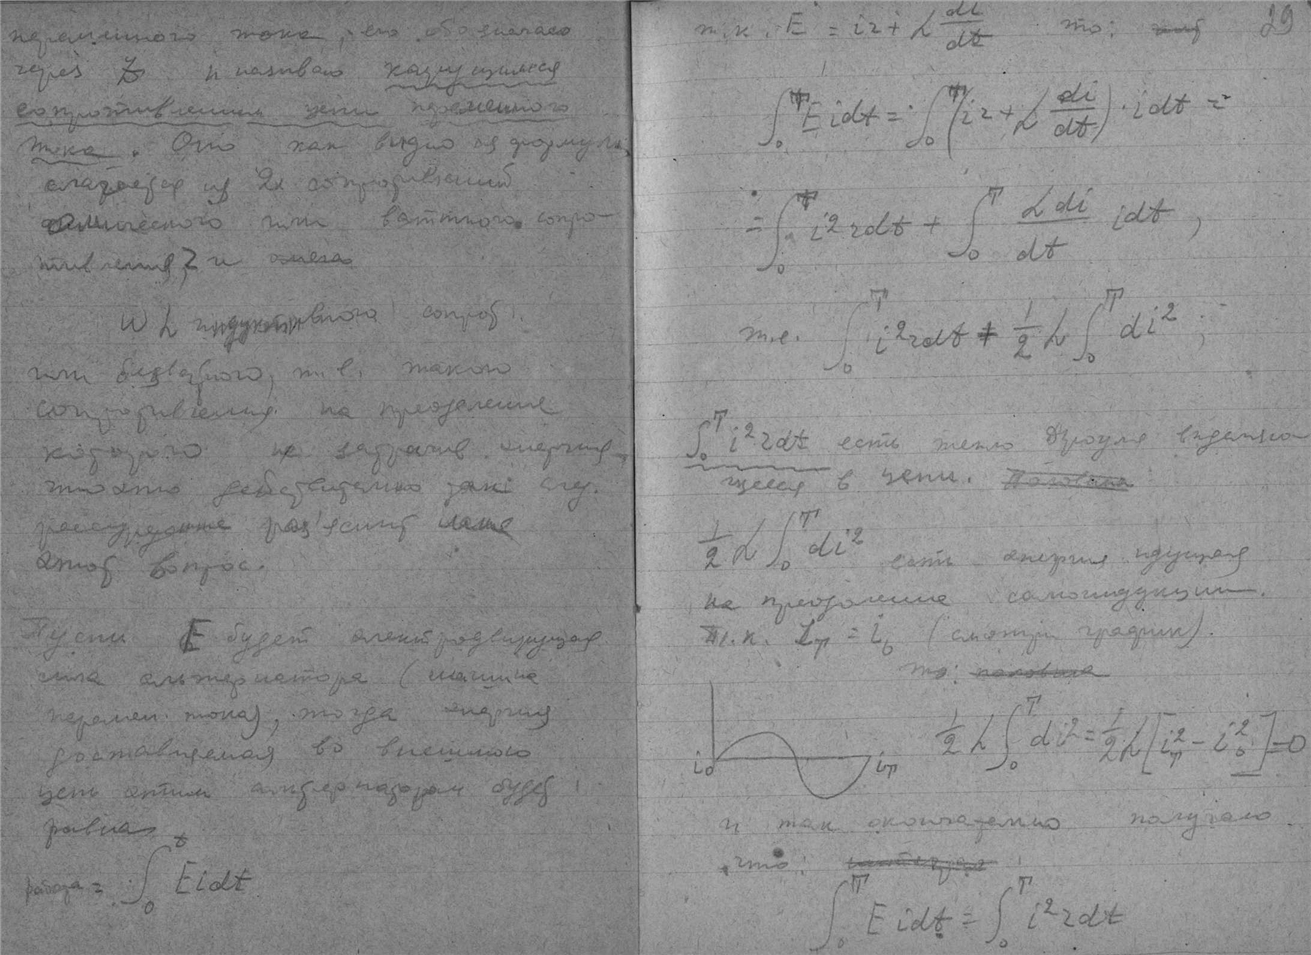 переменного тока, его обозначаю
через Z и называю кажущимся
сопротивлением цепи переменного
тока. Оно как видно из формулы
слагается из 2х сопротивлений
омического или ваттного сопро-
тивления r и
ωL индуктивного сопрот.
или безватного, т.е. такого
сопротивления на преодоление
которого не затрачив. энергия,
что это действительно так след.
рассуждение раз'яснит нам
этот вопрос.
Пусть E будет электродвижущая
сила альтернатора (машина
перемен. тока), тогда энергия
доставляемая во внешнюю
цепь этим альтернатором будет
равна
работа = ∫₀ᵗ Eidt
29
т.к. E = ir + L di/dt то:
∫₀ᵀ Eidt = ∫₀ᵀ (ir + L di/dt) · idt =
= ∫₀ᵀ i²rdt + ∫₀ᵀ Ldi/dt idt,
т.е. ∫₀ᵀ i²rdt + ½ L ∫₀ᵀ di²;
∫₀ᵀ i²rdt есть тепло Джоуля выделяю
щееся в цепи.
½ L ∫₀ᵀ di² есть энергия идущая
на преодоление самоиндукции.
Т.к. i_T = i₀ (смотри график).
то: половина
½ L ∫₀ᵀ di² = ½ L [i²_T − i²₀] = 0
i₀ i_T
и так окончательно получаю
что:
∫₀ᵀ Eidt = ∫₀ᵀ i²rdt